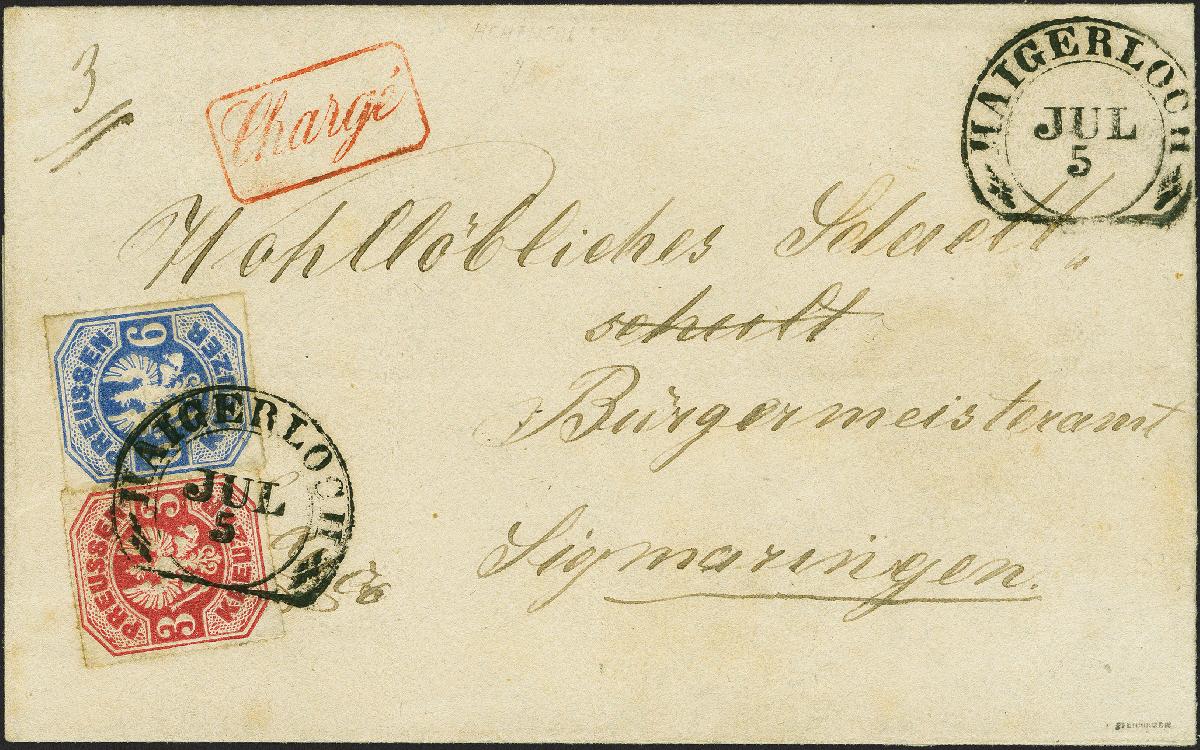 3
Chargé
HAIGERLOCH
JUL
5
Hohllöbliches Stadt„
schult
Bürgermeisteramt
Sigmaringen.
6
PREUSSEN
KREUZER
HAIGERLOCH
JUL
5
3 3
PREUSSEN
KREUZER